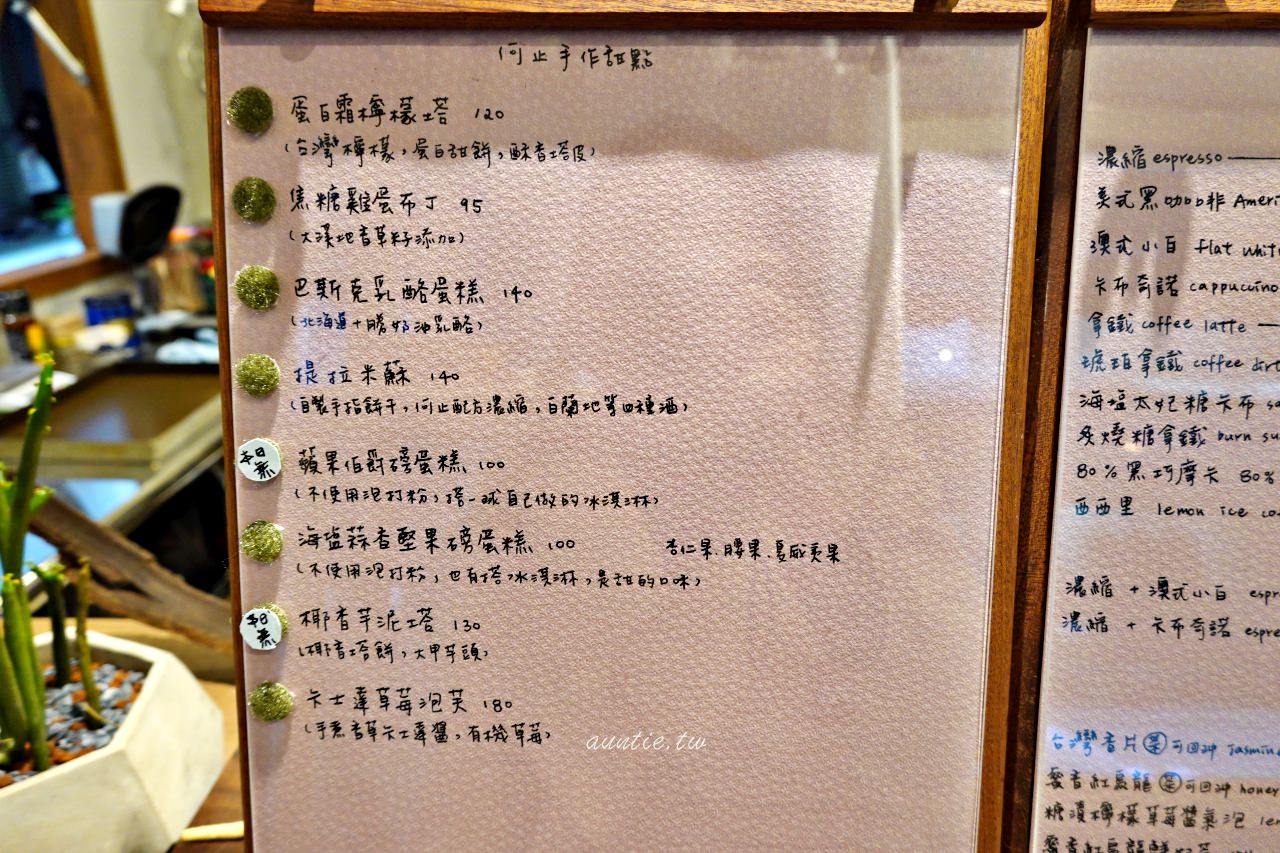 何止手作甜點
蛋白霜檸檬塔 120
(台灣檸檬,蛋白甜餅,酥香塔皮)
焦糖雞蛋布丁 95
(大溪地香草籽添加)
巴斯克乳酪蛋糕 140
(北海道十勝奶油乳酪)
提拉米蘇 140
(自製手指餅干,何止配方濃縮,白蘭地等四種酒)
本日無
蘋果伯爵磅蛋糕 100
(不使用泡打粉,搭一球自己做的冰淇淋)
海塩蒜香堅果磅蛋糕 100 杏仁果、腰果、夏威夷果
(不使用泡打粉,也有搭冰淇淋,是甜的口味)
本日無
椰香芋泥塔 130
(椰香塔餅,大甲芋頭)
卡士達草莓泡芙 180
(手煮香草卡士達醬,有機草莓)
auntie.tw
濃縮 espresso
美式黑咖啡 Ameri
澳式小白 flat white
卡布奇諾 cappuccino
拿鐵 coffee latte
琥珀拿鐵 coffee dirt
海塩太妃糖卡布 sa
炙燒糖拿鐵 burn su
80%黑巧摩卡 80%
西西里 lemon ice co
濃縮 + 澳式小白 espr
濃縮 + 卡布奇諾 espre
台灣香片 茶 可回沖 Jasmin
蜜香紅烏龍 茶 可回沖 honey
糖漬檸檬草莓醬氣泡 lem
蜜香紅烏龍鮮奶茶